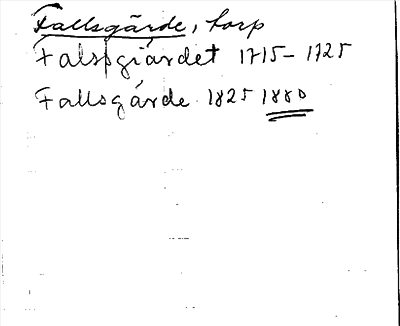 Fallsgärde, torp
Falspgiärdet 1715-1725
Fallsgärde 1825 1880